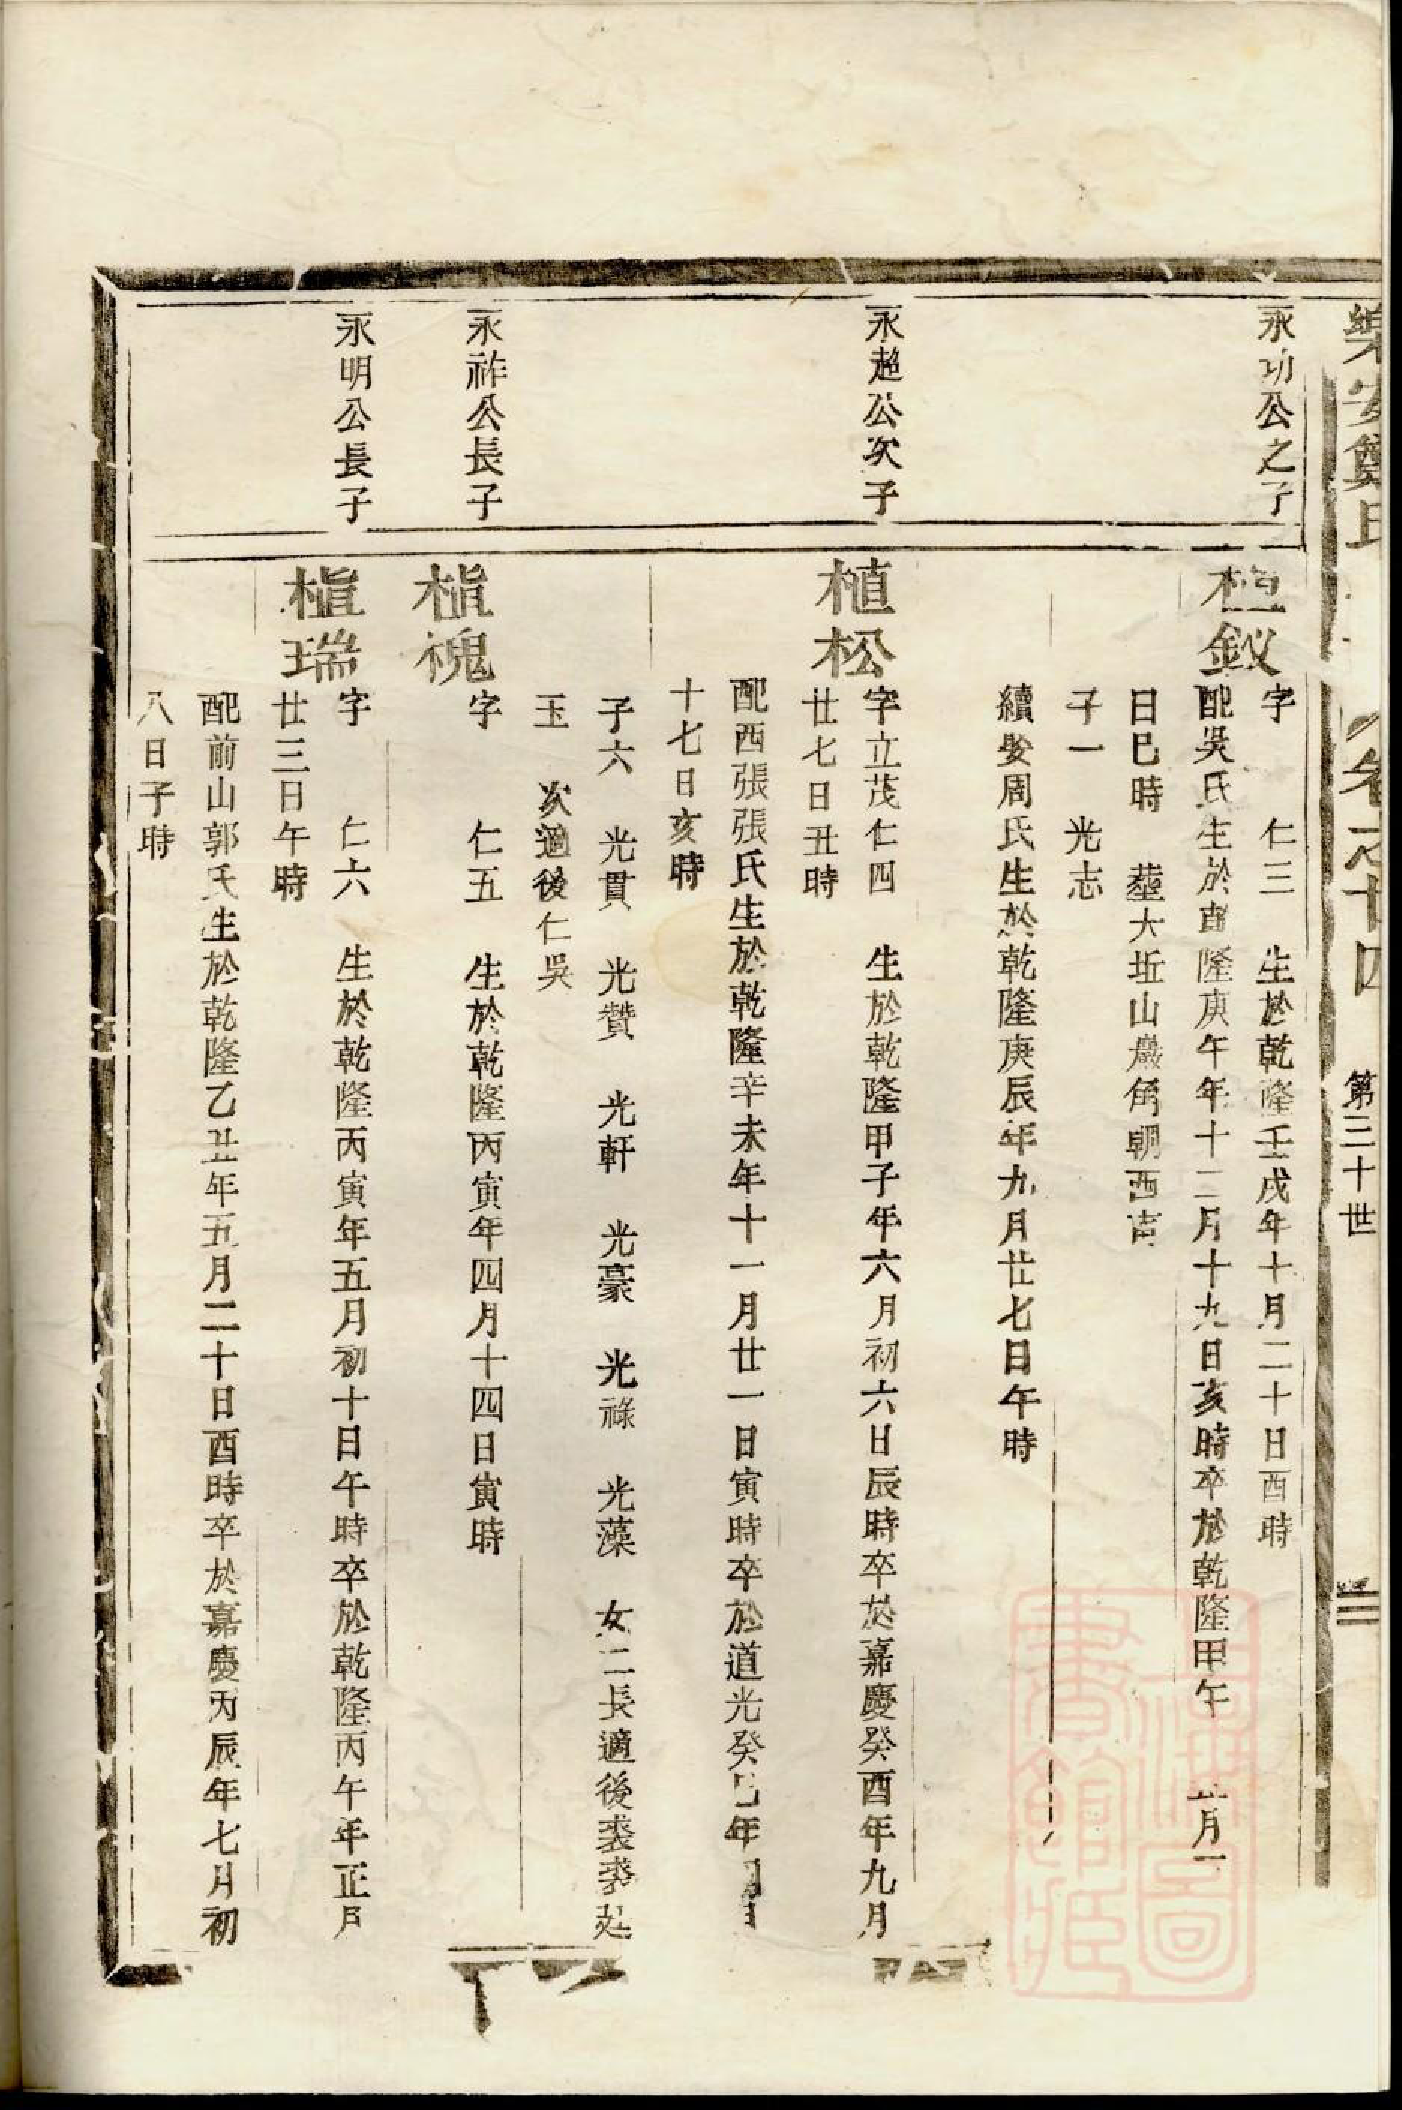 樂安
卷之十四
第三十世
永功公之子
植釵
字 仁三 生於乾隆壬戌年十月二十日酉時
配吳氏生於乾隆庚午年十二月十九日亥時卒於乾隆甲午 正月
日巳時 塟大坵山巖角朝西
子一 光志
續娶周氏生於乾隆庚辰年九月廿七日午時
永超公次子
植松
字立茂仁四 生於乾隆甲子年六月初六日辰時卒於嘉慶癸酉年九月
廿七日丑時
配西張張氏生於乾隆辛未年十一月廿一日寅時卒於道光癸巳年 月
十七日亥時
子六 光貫 光贊 光軒 光豪 光祿 光藻 女二長適後裘裘
玉 次適後仁吳
永祚公長子
植槐
字 仁五 生於乾隆丙寅年四月十四日寅時
永明公長子
植瑞
字 仁六 生於乾隆丙寅年五月初十日午時卒於乾隆丙午年正月
廿三日午時
配前山郭氏生於乾隆乙丑年五月二十日酉時卒於嘉慶丙辰年七月初
八日子時
上海圖
書館藏